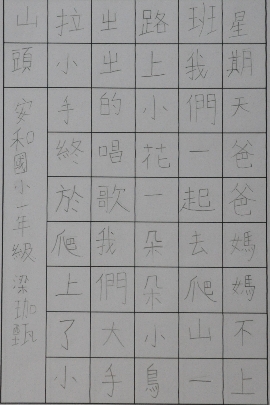 星期天爸爸媽媽不上
班我們一起去爬山一
路上小花一朵朵小鳥
出出的唱歌我們大手
拉小手終於爬上了小
山頭
安和國小一年級 梁珈甄